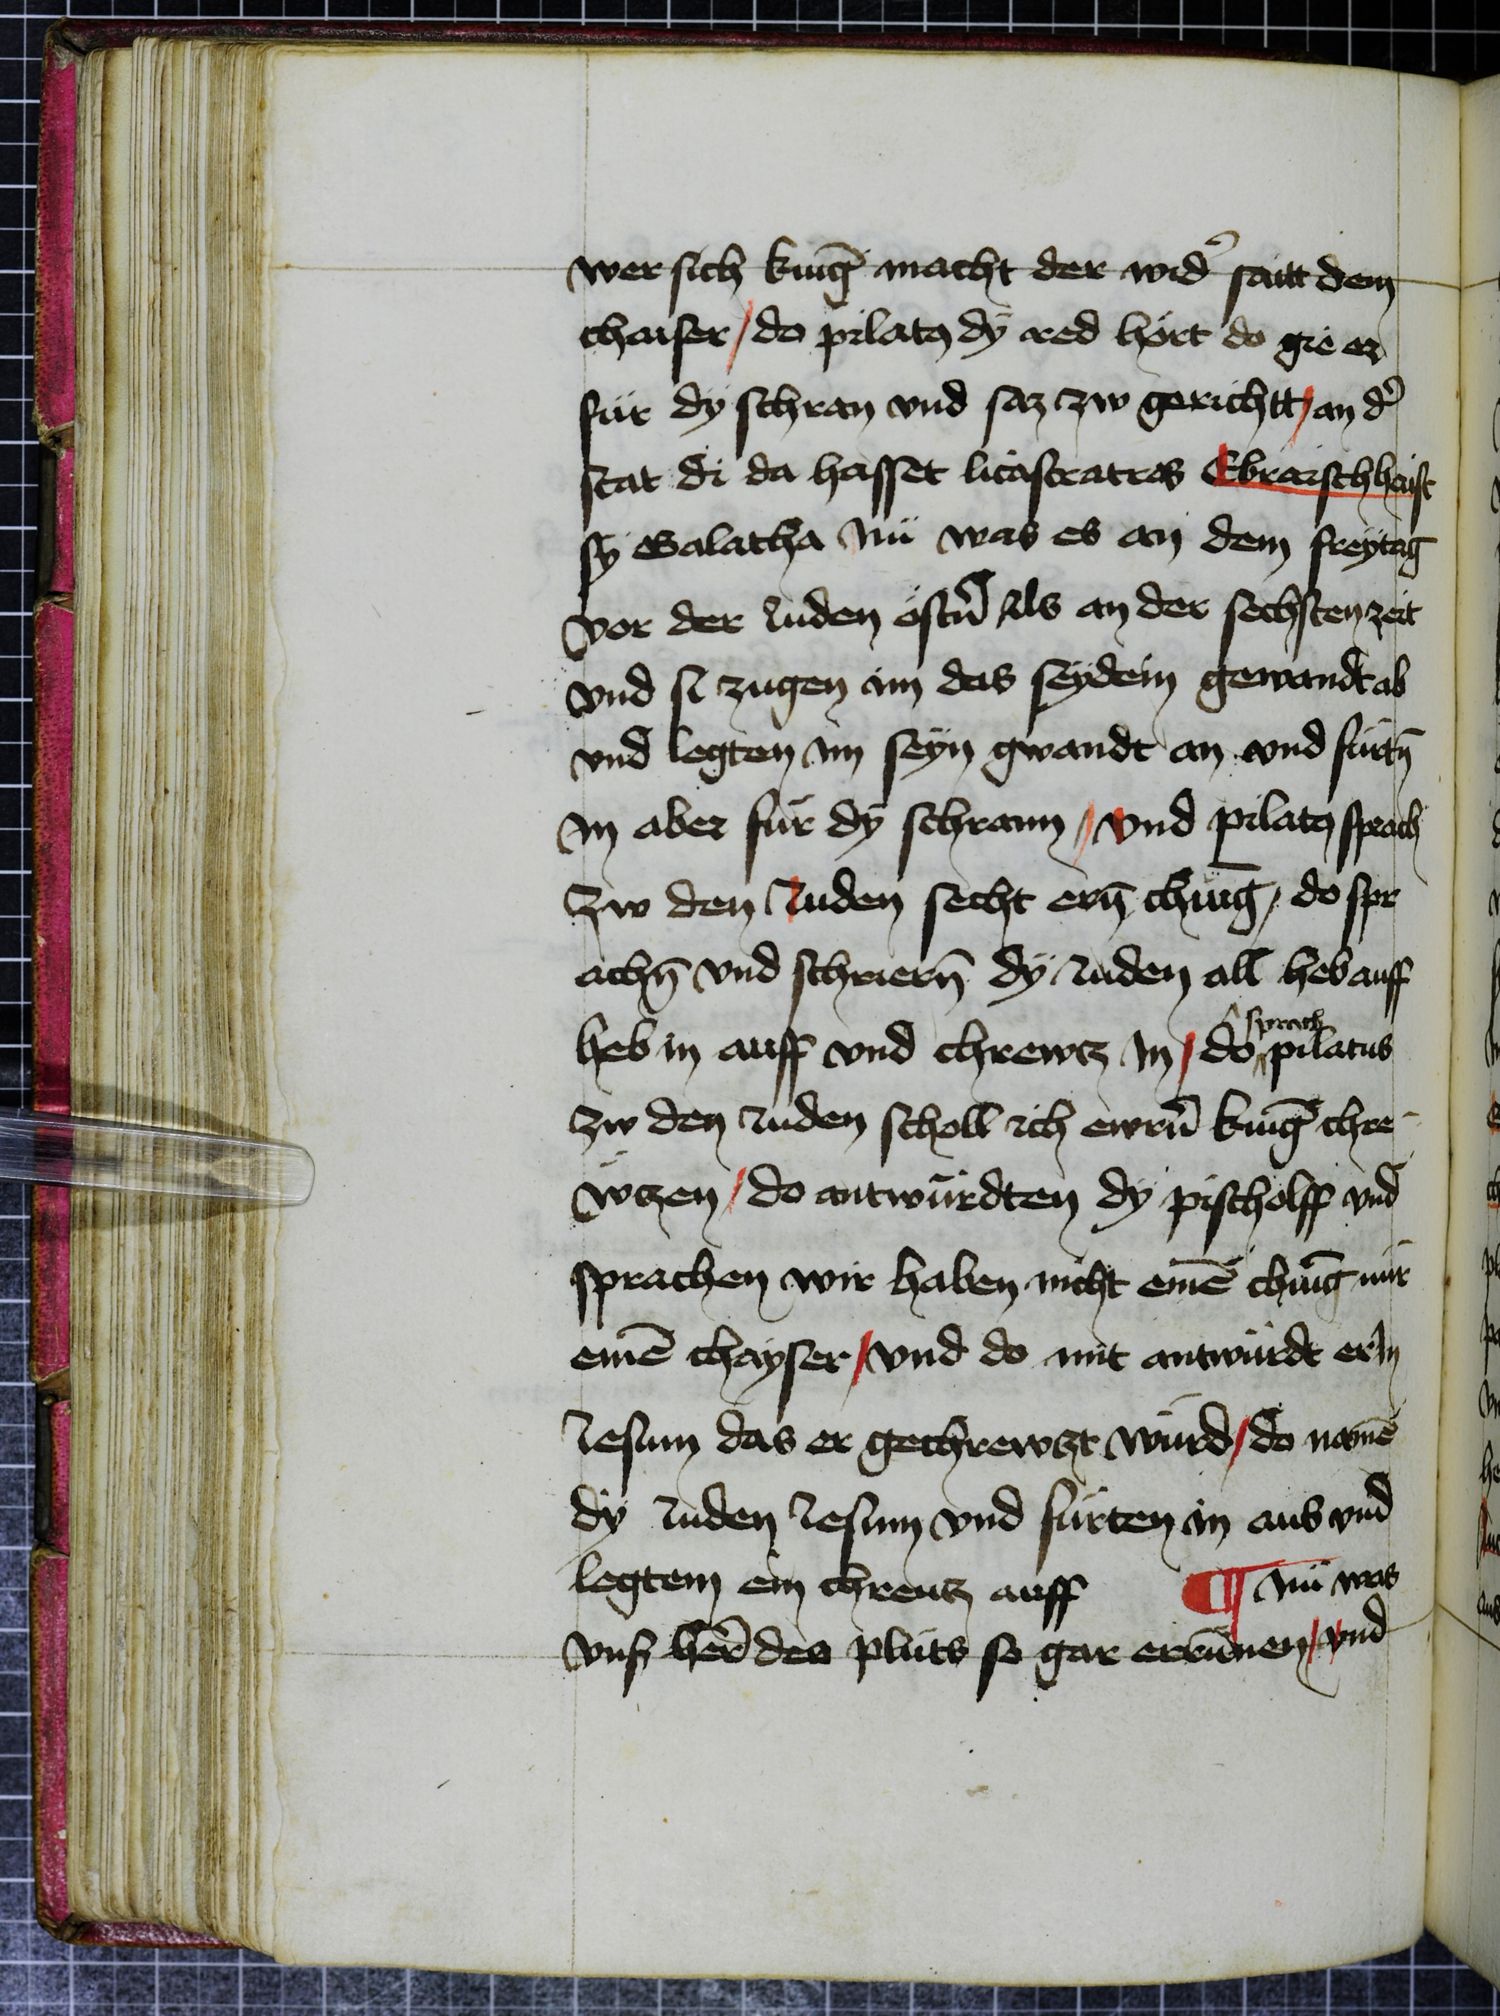 wer sich kuniḡ macht der wid͛ saitt dem
chaiser / do pilatꝰ dÿ red hort do gie er
für dÿ schran vnd saz zw gerichtt / an d͛
stat di da hasset licastratas Ebraisch haist
sÿ Galatha Nü was es an dem freÿtag
vor der Juden öst̄n Als an der sechsten zeit
vnd si zugen im das seÿdein gewandt ab
vnd legten im seÿn gwandt an vnd fürt̄n
in aber für dÿ schrann / vnd pilatꝰ sprach
zw den Juden secht ewrn̄ chūnig / do spr
achn̄ vnd schriern̄ dÿ Juden all heb auff
heb in auff vnd chrewtz in / do sprach pilatus
zw den Juden scholl ich ewrn̄ kunig̅ chre
wtzen / do antwürdten dÿ pischolff vnd
sprachen wir haben nicht einē chūnig nur
einē chaÿser / vnd do mit antwürdt er in
Jesum das er gechrewtzt würd / do namē
dÿ Juden Jesum vnd fürten in aus vnd
legtem ein chreutz auff ¶ Nü was
vnsß her̄ des pluts so gar errūnen / vnd